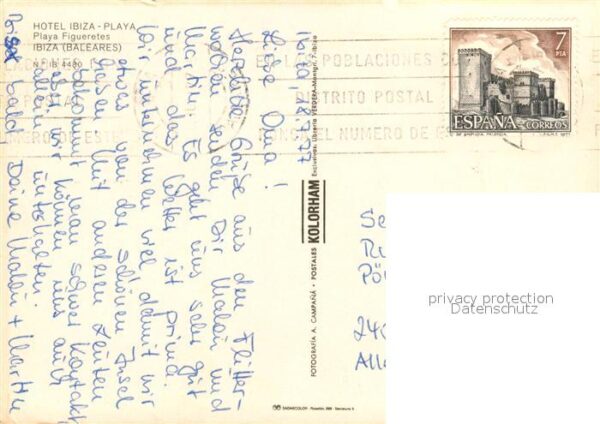 HOTEL IBIZA - PLAYA
Playa Figueretes
IBIZA (BALEARES)
N.º IB 4480
Ibiza, 18.7.77
Liebe Oma!
Herzliche Grüße aus den Flitter-
wochen senden Dir Malou und
Martin. Es geht uns sehr gut
und das Wetter ist prima.
Wir unternehmen viel, damit wir
etwas von der schönen Insel
sehen. Mit anderen Leuten
bekommt man schwer Kontakt,
aber wir können uns auch
allein unterhalten.
Bis bald Deine Malou + Martin
FOTOGRAFÍA A. CAMPAÑÁ • POSTALES KOLORHAM
Exclusivas: Librería VERDERA
EN LAS POBLACIONES CON
DISTRITO POSTAL
CON EL NUMERO DE ES
7
PTA
ESPAÑA CORREOS
privacy protection
Datenschutz